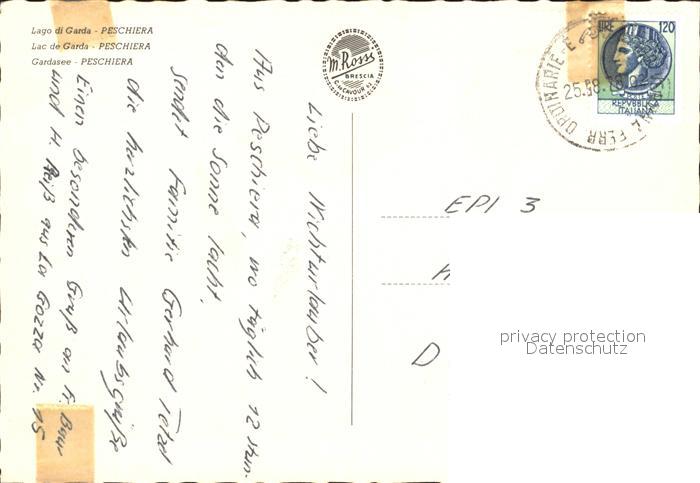 Lago di Garda - PESCHIERA
Lac de Garda - PESCHIERA
Gardasee - PESCHIERA
m. Rossi
BRESCIA
C. so CAVOUR
Liebe Nichturlauber!
Aus Peschiera, wo täglich 12 Stun-
den die Sonne lacht,
sendet Familie Gerhard
die herzlichsten Urlaubsgrüße
Einen besonderen Gruß an Fr. Baur
und H. Reiß aus La Gozza Nr. 15
LIRE 120
REPVBBLICA
ITALIANA
ORDINARIE E
FERR
25.8.
EPI 3
D
privacy protection
Datenschutz